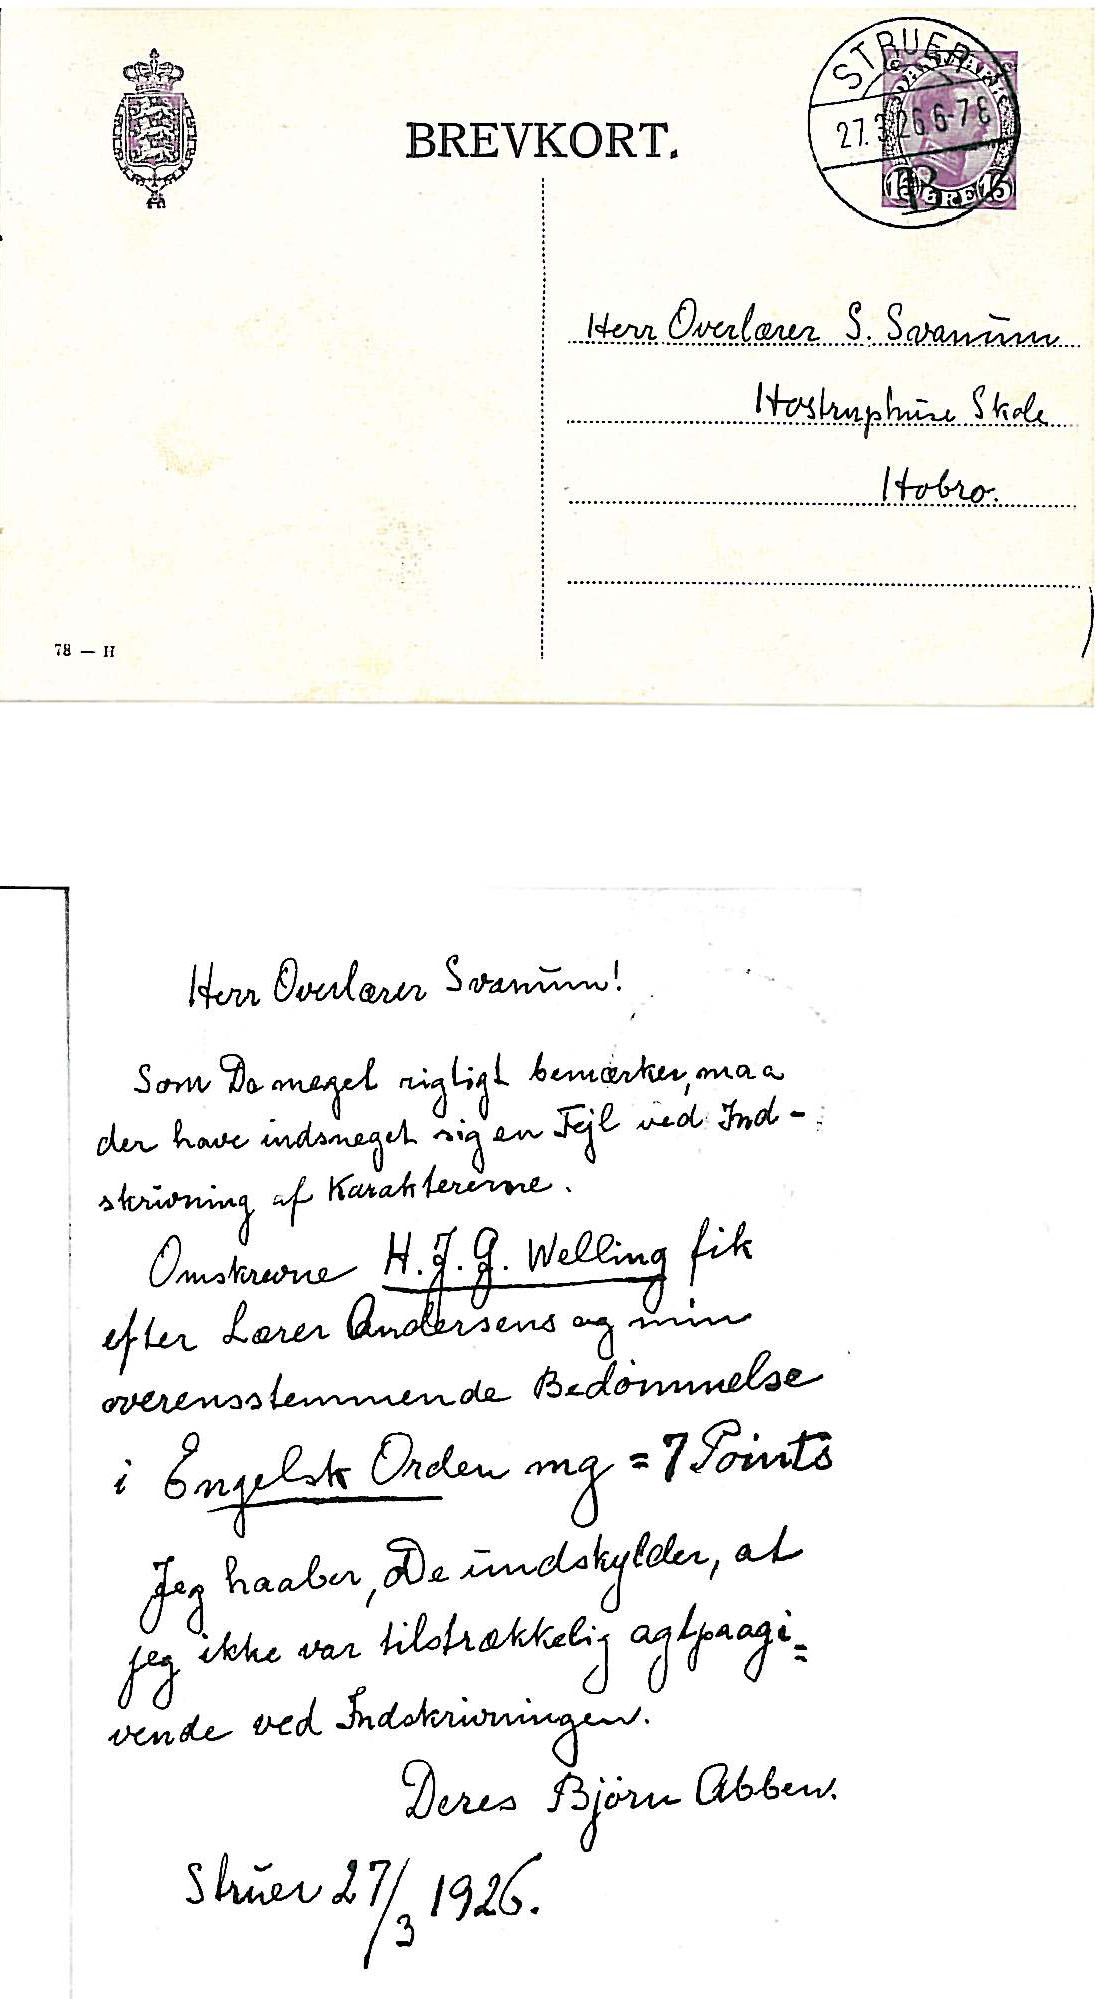 BREVKORT.
STRUER
27.3.26 6-7 E
B
DANMARK
15 ØRE 15
Herr Overlærer S. Svanum
Hostruphuse Skole
Hobro.
78 — H
Herr Overlærer Svanum!
Som De meget rigtigt bemærker, maa
der have indsneget sig en Fejl ved Ind-
skrivning af Karaktererne.
Omskrevne H. J. G. Welling fik
efter Lærer Andersens og min
overensstemmende Bedømmelse
i Engelsk Orden mg = 7 Points
Jeg haaber, De undskylder, at
jeg ikke var tilstrækkelig agtpaagi=
vende ved Indskrivningen.
Deres Bjørn Abben.
Struer 27/3 1926.